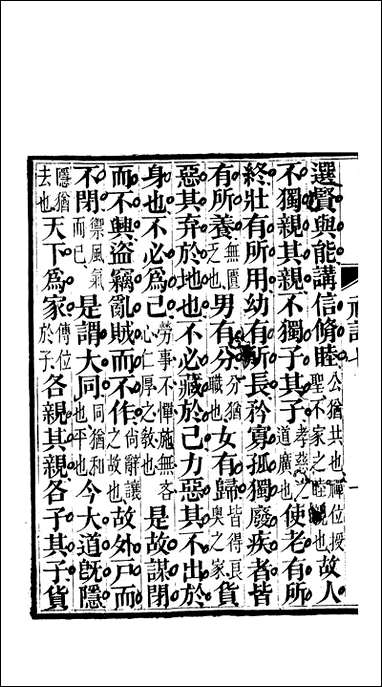 選賢與能講信脩睦公猶共也禪位授聖不家之睦親也故人
不獨親其親不獨子其子孝慈之道廣也使老有所
終壯有所用幼有所長矜寡孤獨廢疾者皆
有所養無匱乏也男有分分猶職也女有歸皆得良奧之家貨
惡其弃於地也不必藏於己力惡其不出於
身也不必爲己勞事不憚施無吝心仁厚之敎也是故謀閉
而不興盜竊亂賊而不作尚辭讓之故也故外戶而
不閉禦風氣而已是謂大同同猶和也平也今大道旣隱
隱猶去也天下爲家傳位於子各親其親各子其子貨